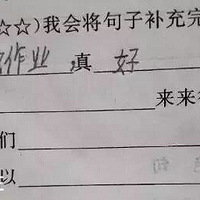 ☆☆)我会将句子补充完
作业,真 好
来来
们
以